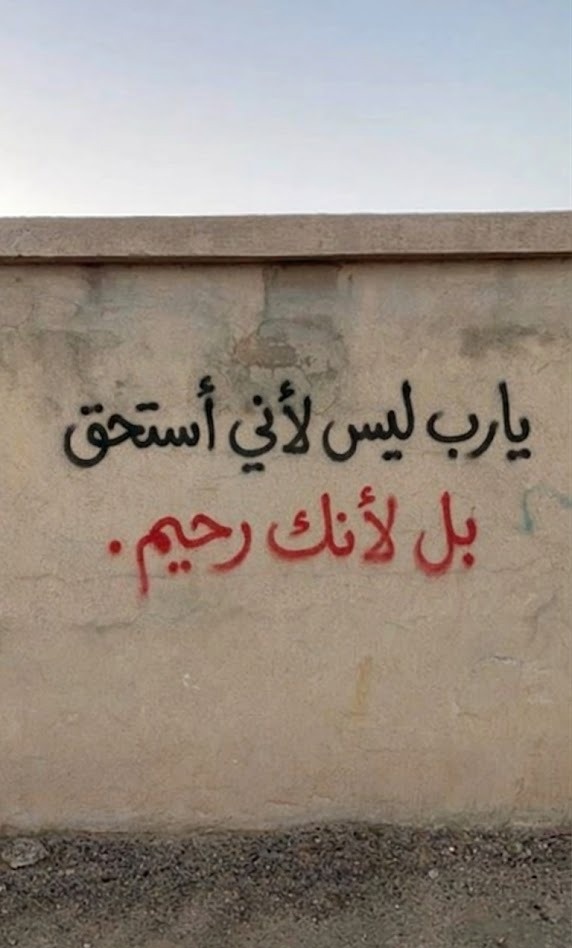 يارب ليس لأني أستحق
بل لأنك رحيم.